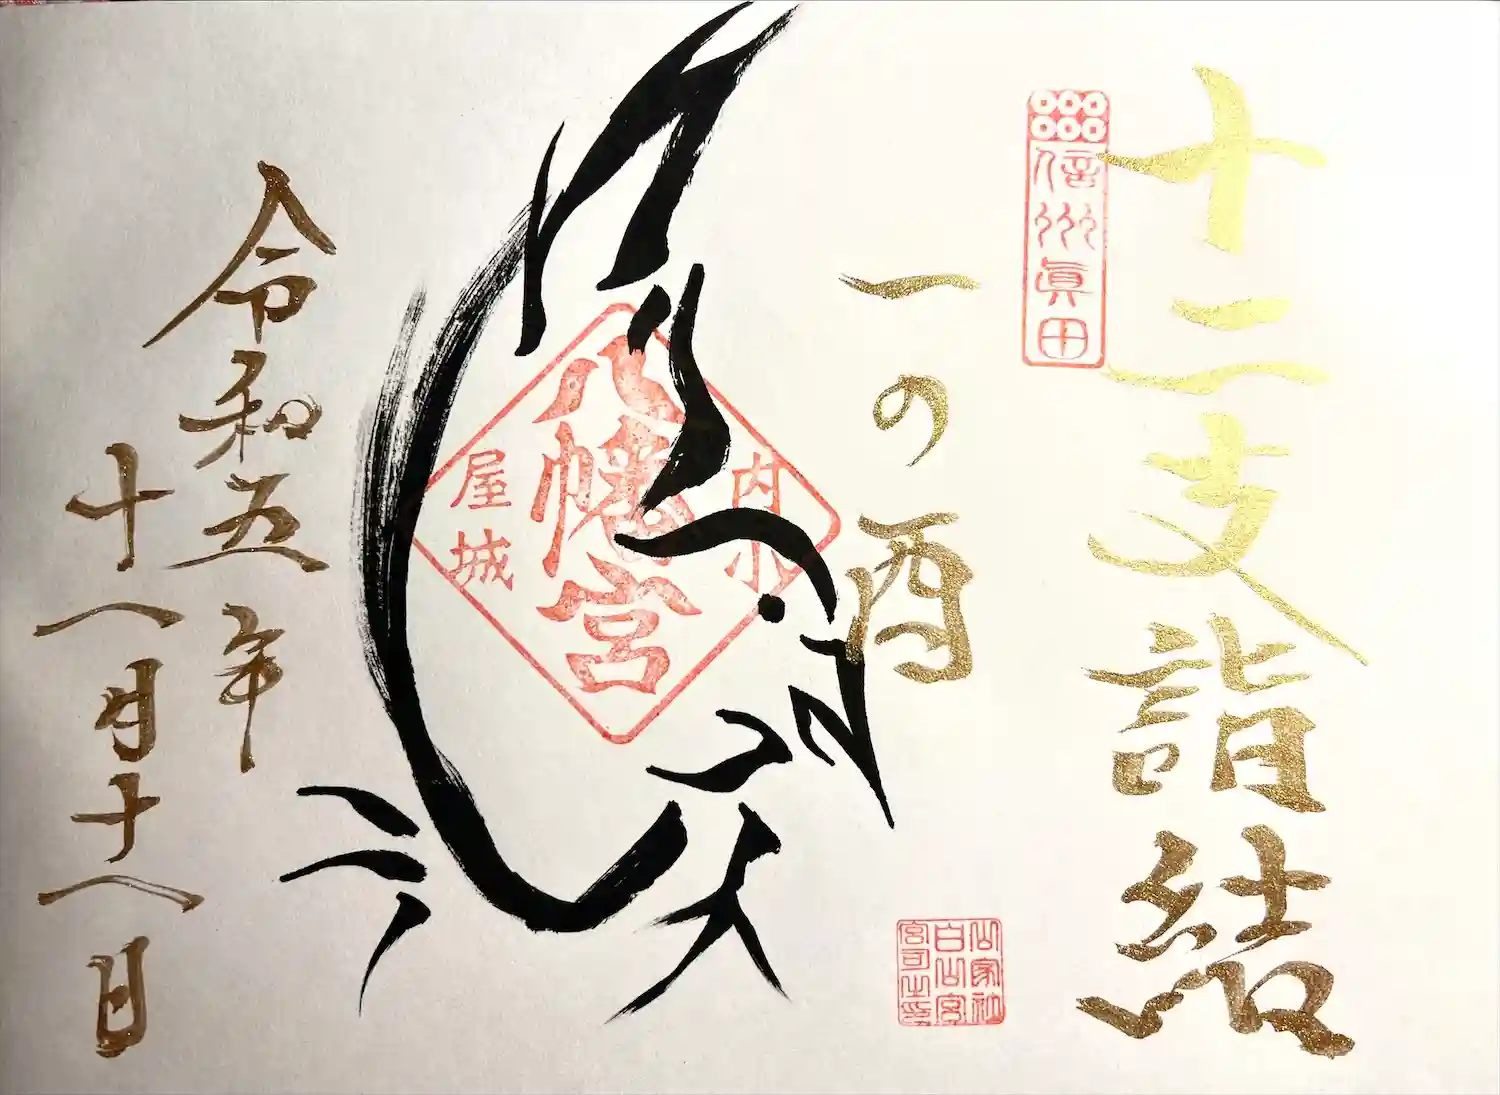 十二支詣結
信州眞田
一の酉
内小
八幡宮
屋城
山家社
白山宮
宮司之印
令和五年
十一月十一日